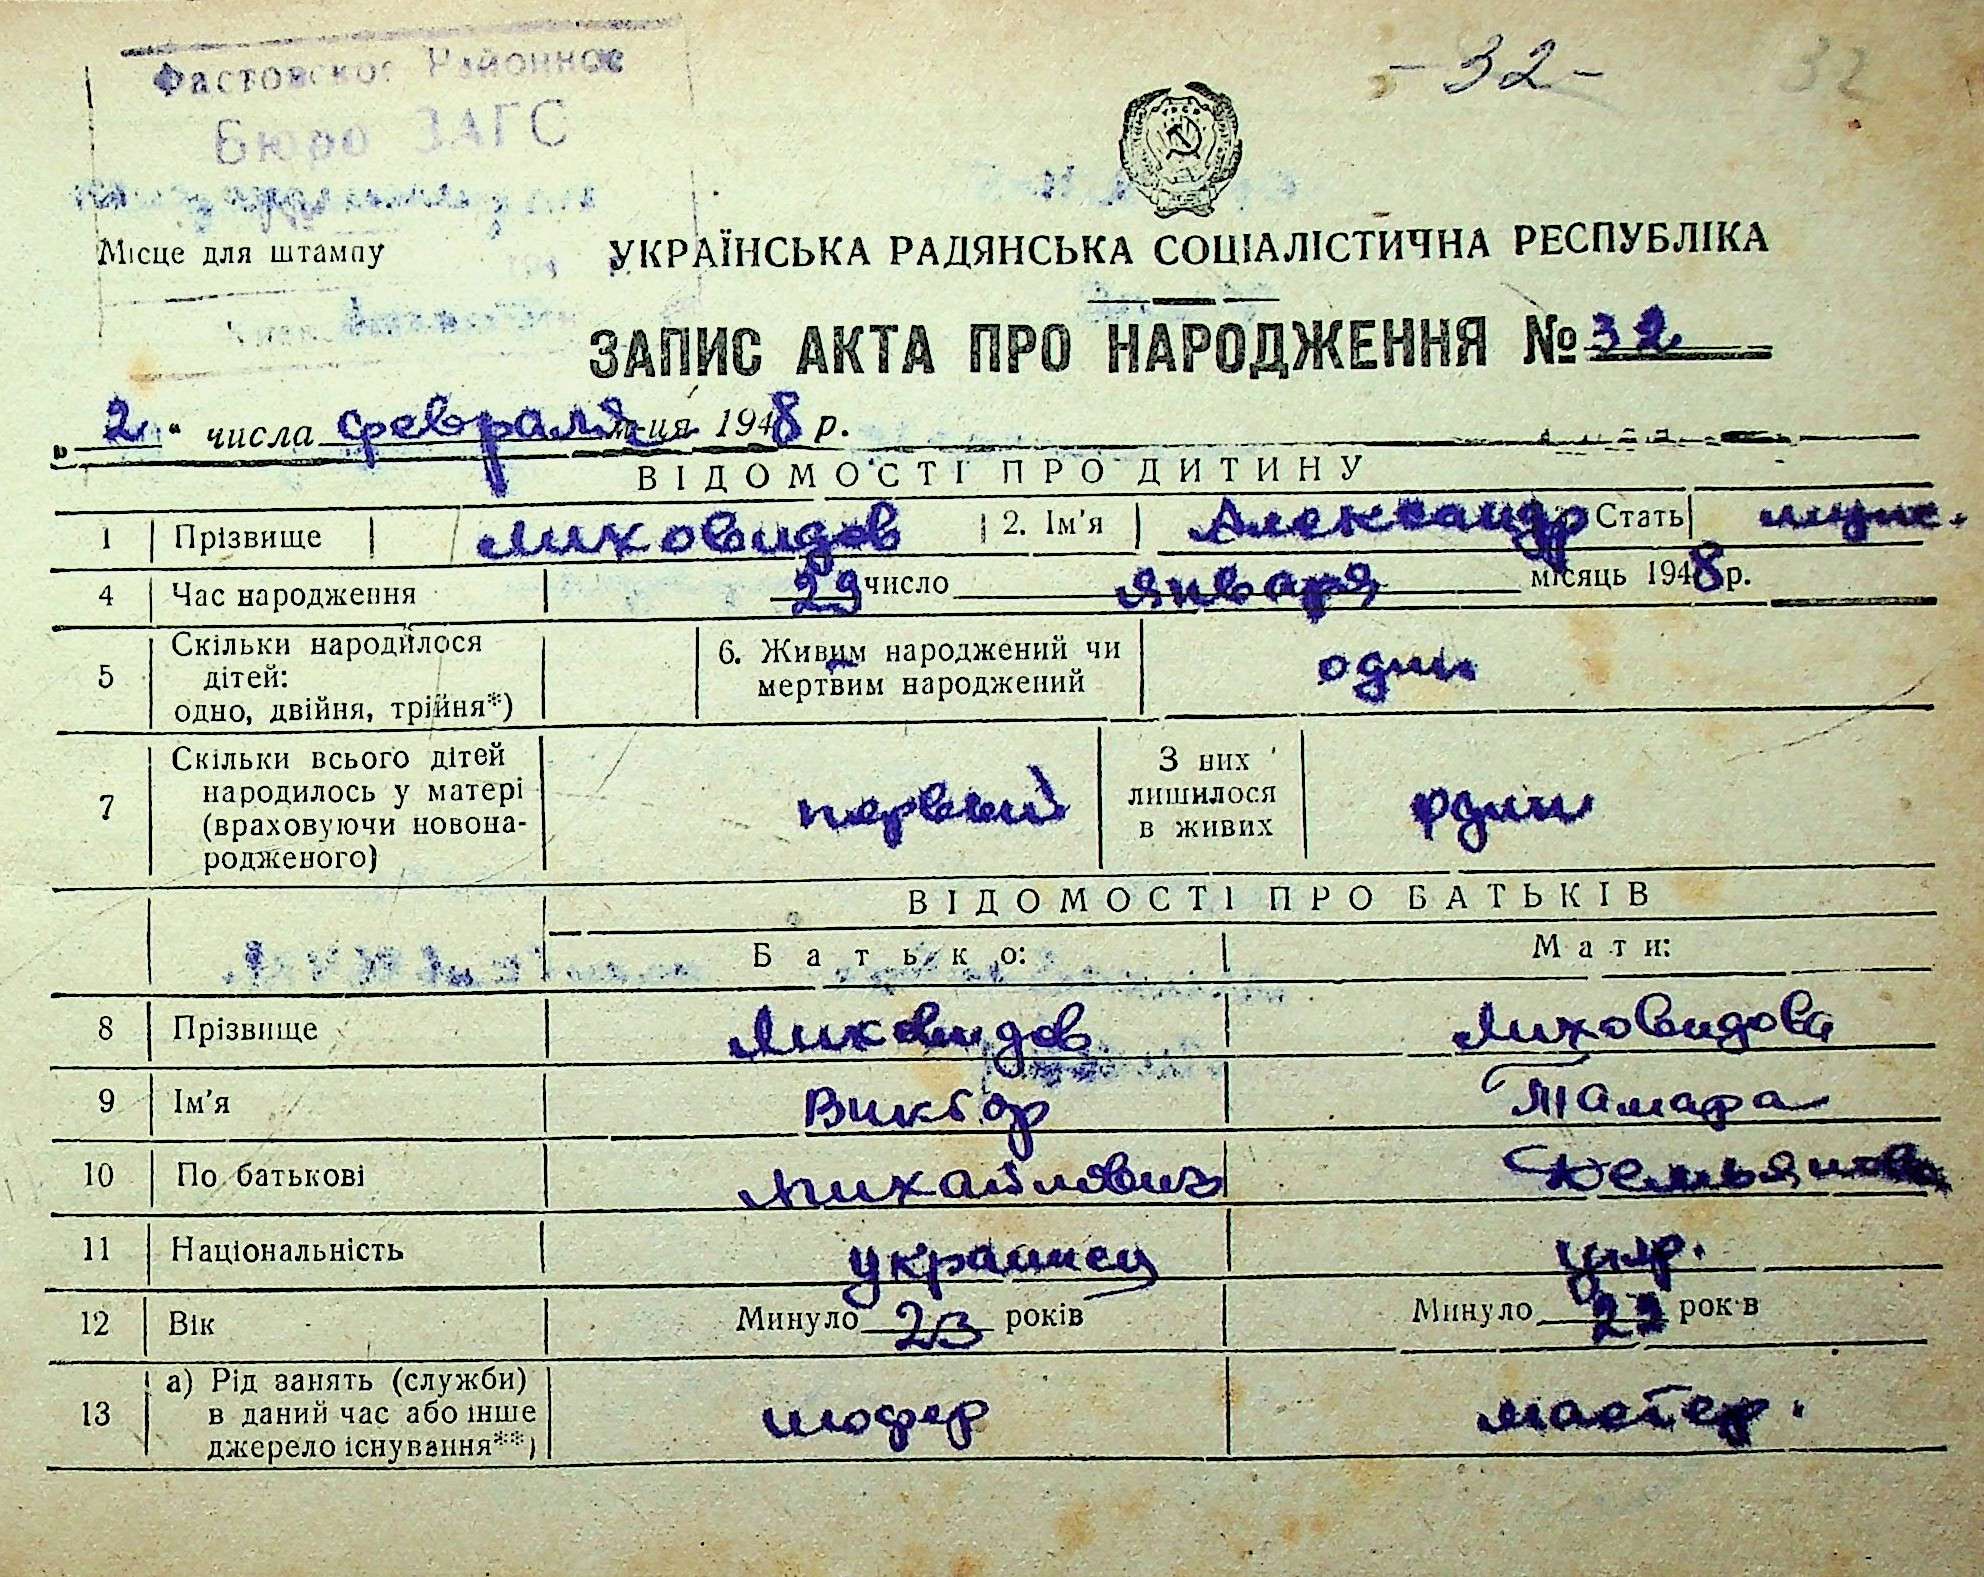 Фастовское Районное
Бюро ЗАГС
- 32 -
32
Місце для штампу
УКРАЇНСЬКА РАДЯНСЬКА СОЦІАЛІСТИЧНА РЕСПУБЛІКА
ЗАПИС АКТА ПРО НАРОДЖЕННЯ № 32
„ 2 " числа февраля м-ця 1948 р.
ВІДОМОСТІ ПРО ДИТИНУ
1 Прізвище Лиховидов 2. Ім'я Александр Стать муж.
4 Час народження 29 число января місяць 1948 р.
5 Скільки народилося
дітей:
одно, двійня, трійня*)
6. Живим народжений чи
мертвим народжений
один
7 Скільки всього дітей
народилось у матері
(враховуючи новона-
родженого)
первый
З них
лишилося
в живих
один
ВІДОМОСТІ ПРО БАТЬКІВ
Батько: Мати:
8 Прізвище Лиховидов Лиховидова
9 Ім'я Виктор Тамара
10 По батькові Михайлович Демьяновна
11 Національність украинец укр.
12 Вік Минуло 23 років Минуло 22 рок в
13 а) Рід занять (служби)
в даний час або інше
джерело існування**)
шофер мастер.